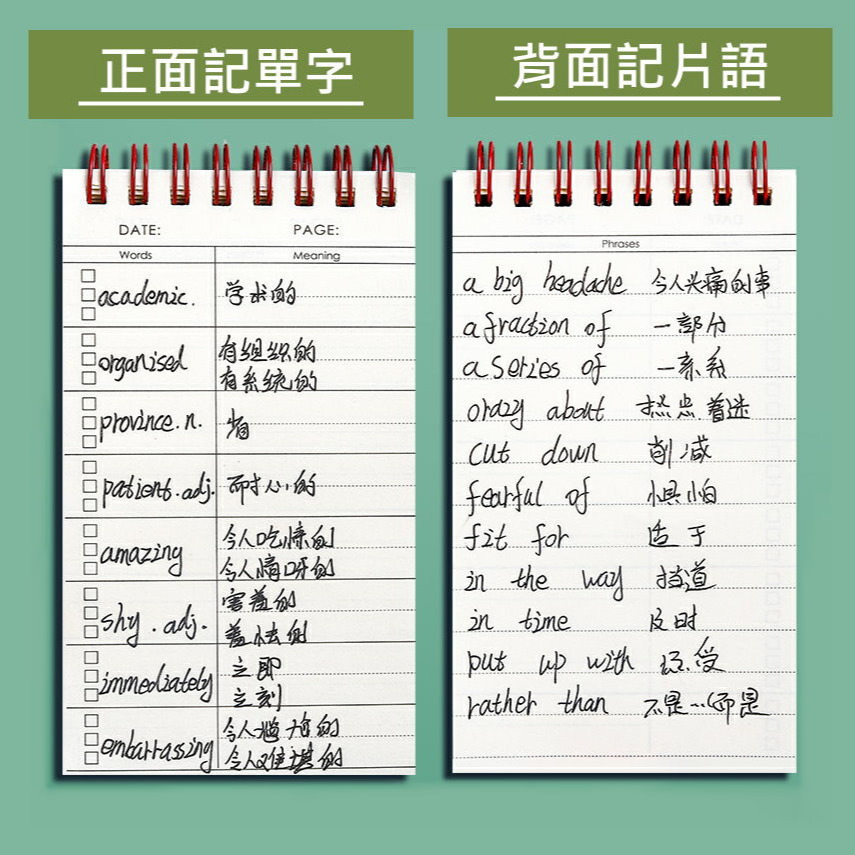 正面記單字
DATE: PAGE:
Words Meaning
academic. 学术的
organised 有组织的
有系统的
province.n. 省
patient.adj. 耐心的
amazing 令人吃惊的
令人惰呀的
shy.adj. 害羞的
羞怯的
immediately 立即
立刻
embarrassing 令人尴尬的
令人难堪的
背面記片語
Phrases
a big headache 令人头痛的事
a fraction of 一部分
a series of 一系系
crazy about 热点着迷
cut down 削减
fearful of 惧怕
fit for 适于
in the way 挡道
in time 及时
put up with 忍受
rather than 不是…而是